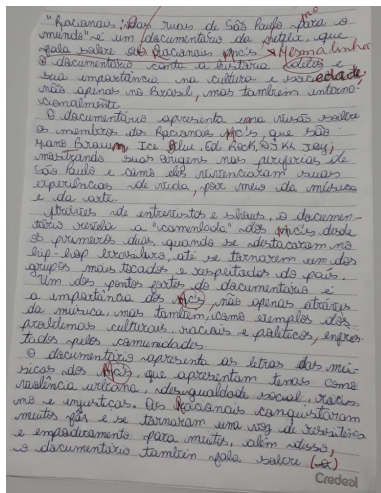 "Racionais: Das ruas de São Paulo para o
mundo" é um documentário da Netflix, que
fala sobre os Racionais Mc's → Mesma linha
O documentário conta a história deles e
sua importância na cultura e sociedade,
não apenas no Brasil, mas também interna-
cionalmente.
O documentário apresenta uma visão sobre
os membros dos Racionais Mc's, que são
Mano Brown, Ice Blue, Ed Rock, DJ KL Jay,
mostrando suas origens nas periferias de
São Paulo e como eles vivenciaram suas
experiências de vida, por meio da música
e da arte.
Através de entrevistas e shows, o documen-
tário revela a "caminhada" dos Mc's desde
os primeiros dias, quando se destacaram no
hip-hop brasileiro, até se tornarem um dos
grupos mais tocados e respeitados do país.
Um dos pontos fortes do documentário é
a importância dos Mc's, não apenas através
da música, mas também, como exemplos dos
problemas culturais, raciais e políticos, enfren
tados pelas comunidades.
O documentário apresenta as letras das mú-
sicas dos Mc's, que apresentam temas como
violência urbana, desigualdade social, racis
mo e injustiças. Os Racionais conquistaram
muitos fãs e se tornaram uma voz de resistência
e empoderamento para muitos, além disso,
o documentário também fala sobre
Credeal